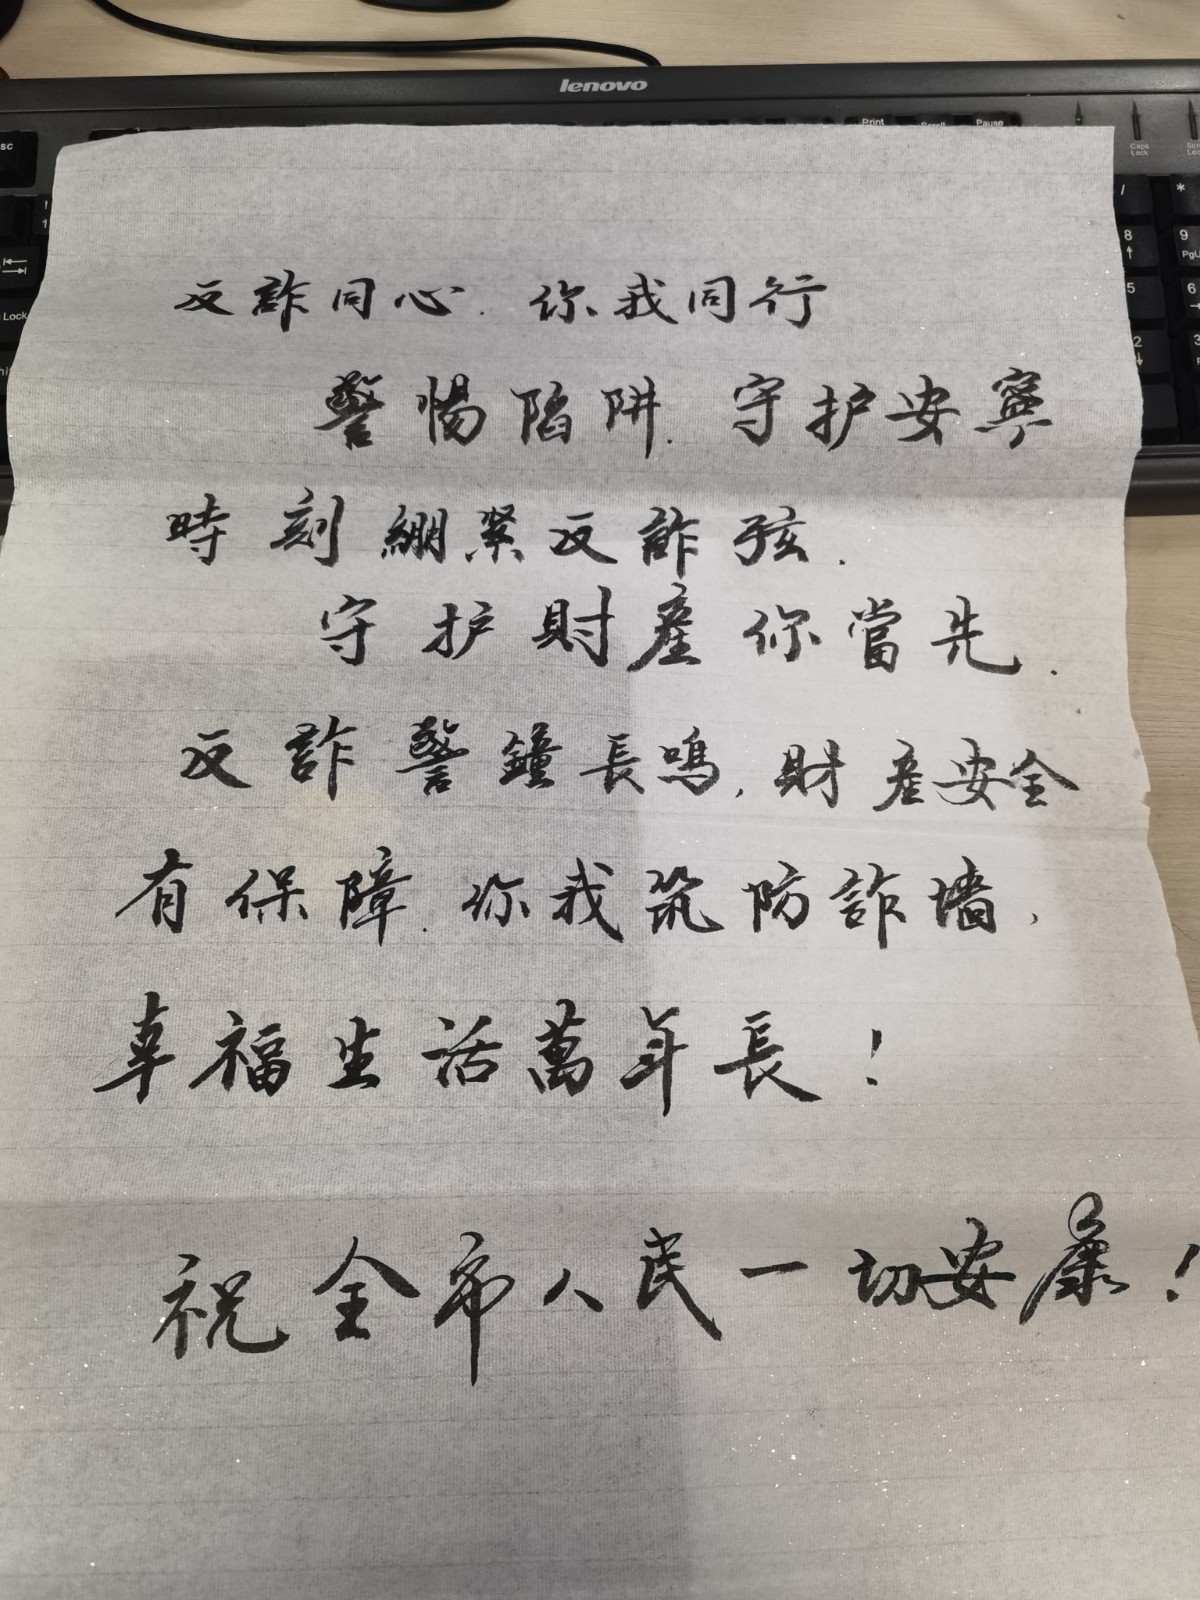 lenovo
Print
Pause
反詐同心.你我同行
警惕陷阱.守护安寧
時刻綳緊反詐弦.
守护財產你當先.
反詐警鐘長鳴,財產安全
有保障.你我筑防詐墙,
幸福生活萬年長!
祝全市人民一切安康!